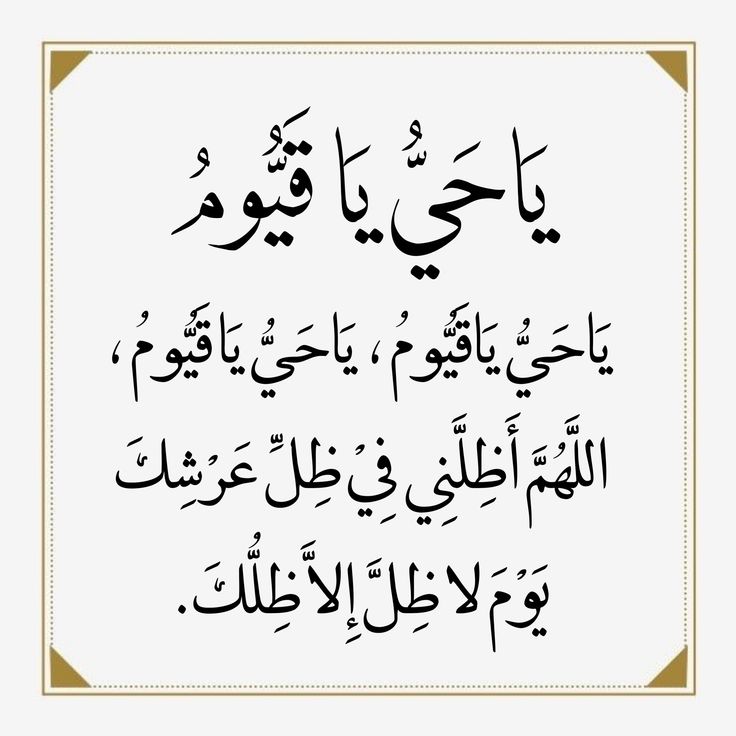 يَا حَيُّ يَا قَيُّومُ
يَا حَيُّ يَا قَيُّومُ، يَا حَيُّ يَا قَيُّومُ،
اللَّهُمَّ أَظِلَّنِي فِيْ ظِلِّ عَرْشِكَ
يَوْمَ لا ظِلَّ إِلاَّ ظِلُّكَ.